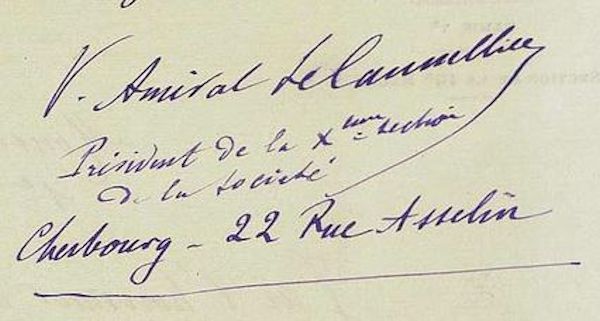 V. Amiral Le Cannellier
Président de la Xème section
de la Société
Cherbourg - 22 Rue Asselin